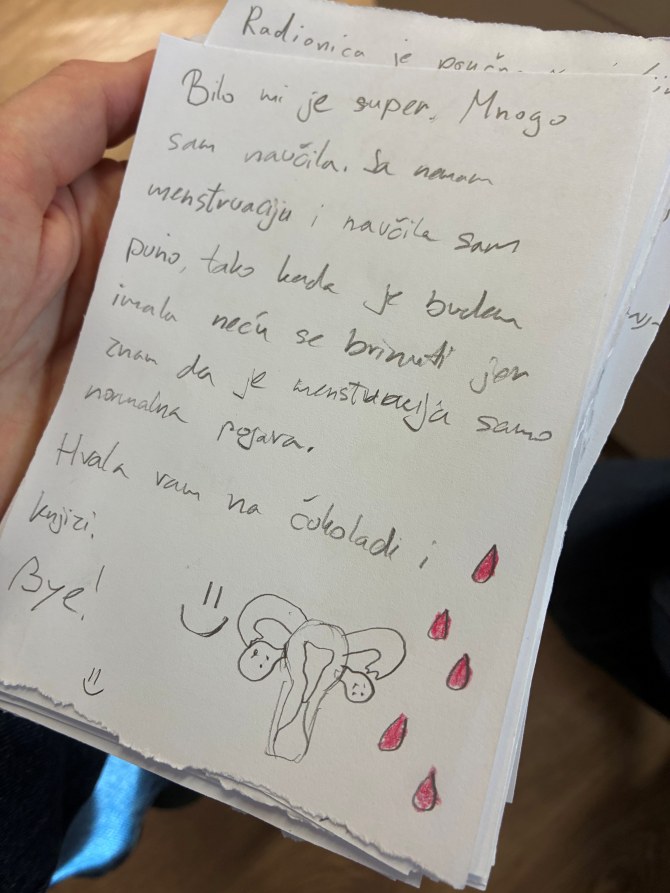 Radionica je
Bilo mi je super. Mnogo
sam naučila. Ja nemam
menstruaciju i naučila sam
puno, tako kada je budem
imala neću se brinuti jer
znam da je menstruacija samo
normalna pojava.
Hvala vam na čokoladi i
knjizi.
Bye!